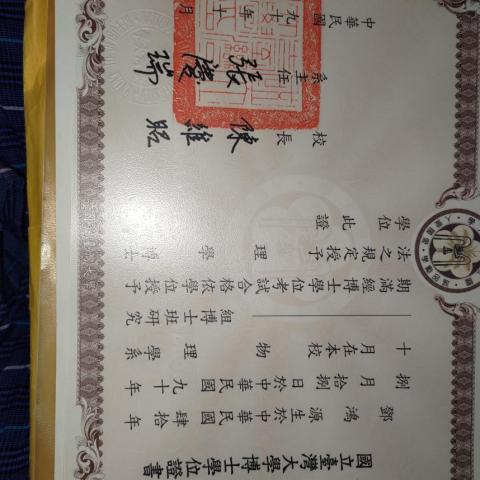 國立臺灣大學博士學位證書
鄧鴻源生於中華民國肆拾年
捌月拾捌日於中華民國九十年
十月在本校物理學系
組博士班研究
期滿經博士學位考試合格依學位授予
法之規定授予理學博士
學位此證
校長 陳維昭
系主任 張慶瑞
中華民國九十年十月